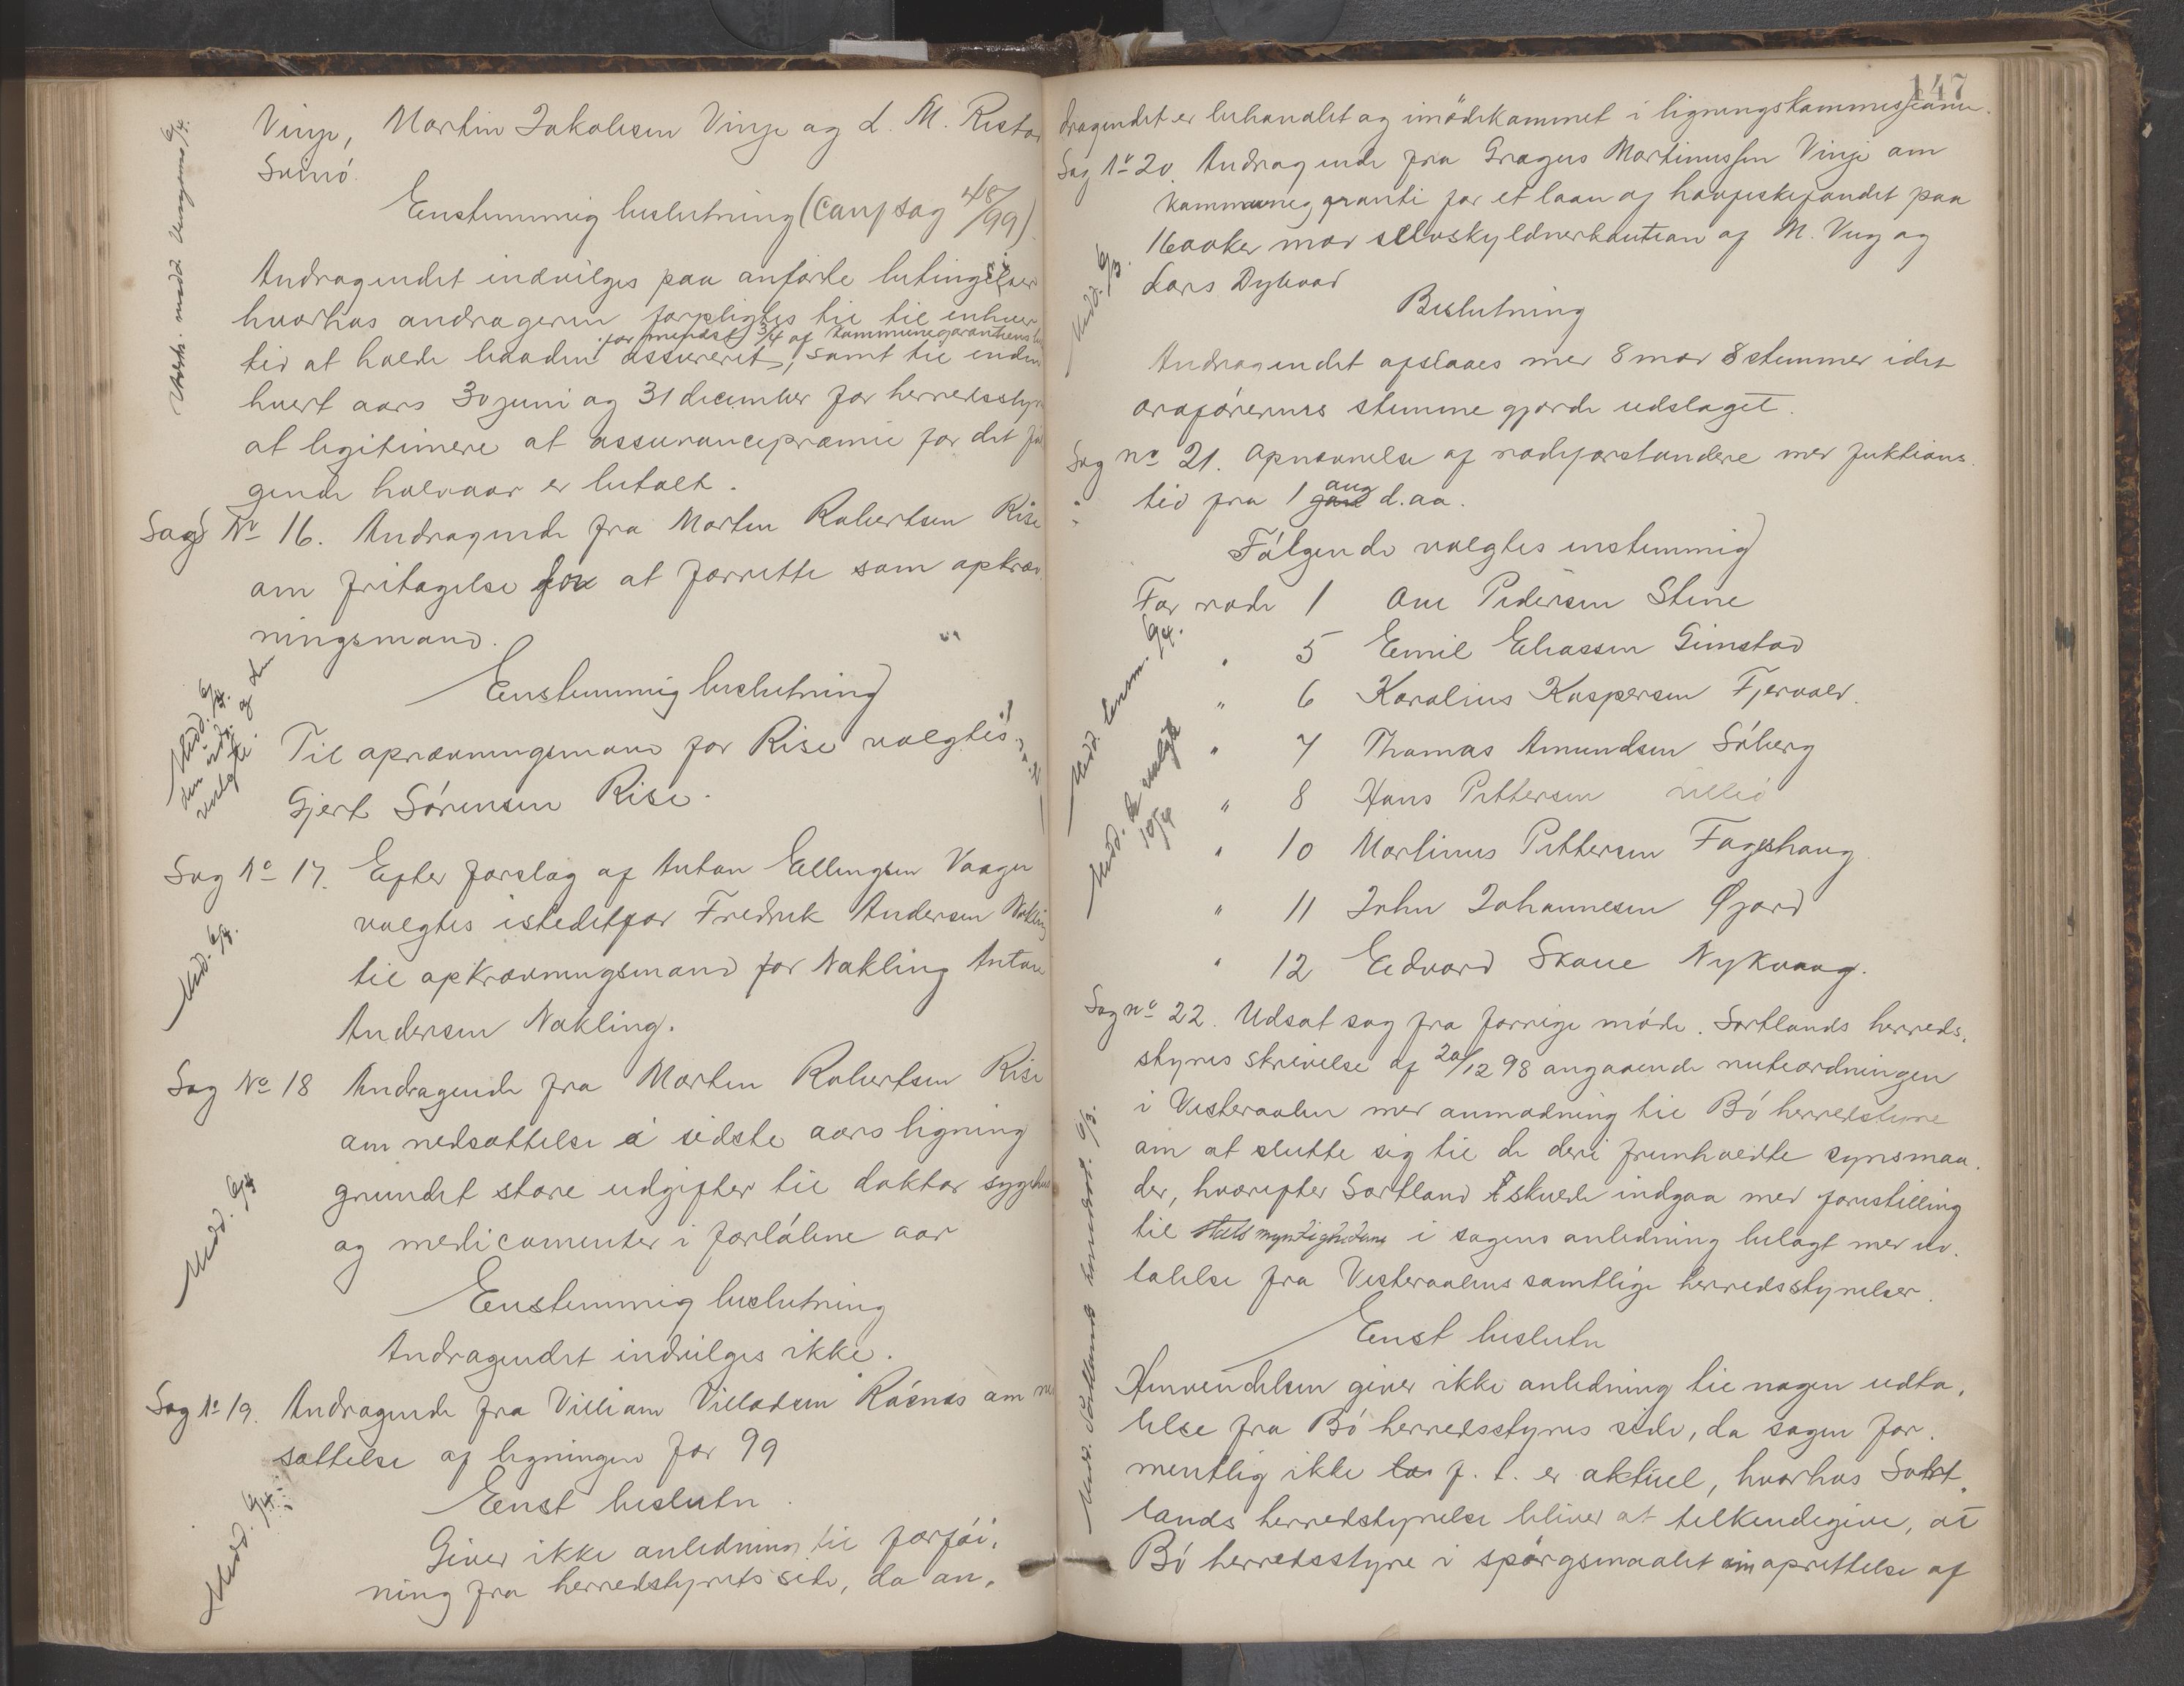 Vinje, Martin Jakobsen Vinje og L. M.
Svinö.
Enstemmig beslutning (Conf sag 48/99)
Andragendet indvilges paa anförte betingelser
hvorhos andrageren forpligtes til til enhver
for mindst 3/4 af kommunegarantiens
tid at holde baaden assureret, samt til inden
hvert aars 30 juni og 31 december for herredsstyr
at legitimere at assurancepræmie for det
gende halvaar er betalt.
Sag No 16. Andragende fra Morten Robertsen Rise
om fritagelse for at forrette som opkræv
ningsmand.
Enstemmig beslutning
Til opkrævningsmand for Rise valgtes
Gjert Sörensen Rise.
Sag No 17. Efter forslag af Anton Ellingsen Vaagen
valgtes istedetfor Fredrik Andersen Nakling
til opkrævningsmand for Nakling Anton
Andersen Nakling.
Sag No 18 Andragende fra Morten Robertsen Rise
om nedsættelse i sidste aars ligning
grundet store udgifter til doktor sygehus
og medicamenter i forlöbne aar
Enstemmig beslutning
Andragendet indvilges ikke.
Sag No 19. Andragende fra Villiam Villadsen Raanes om ned
sættelse af ligningen for 99
Enst beslutn.
Giver ikke anledning til forföi,
ning fra herredstyrets side, da an,
Medd. 6/4.
den udv. og den
valgte.
Med. 6/4.
Medd. 6/4
Medd. 6/4.
147
dragendet er behandlet og imödekommet i ligningskommissionen.
Sag No 20. Andragende fra Gregus Martinussen Vinje om
kommunegaranti for et laan af havfiskefondet paa
1600 kr mod selvskyldnerkaution af M. Ving og
Lars Dybvad
Beslutning
Andragendet afslaaes med 8 mod 8 stemmer idet
ordförerens stemme gjorde udslaget.
Sag no 21. Opnævnelse af rodeforstandere med funktions
aug
tid fra 1 d.aa.
Fölgende valgtes enstemmig
For rode 1 Ole Pedersen Steine
" 5 Emil Eliassen Gimstad
" 6 Karolius Kaspersen Fjervold.
" 7 Thomas Amundsen Söberg
" 8 Hans Pettersen
" 10 Martinus Pettersen Fageshaug
" 11 John Johannesen Øjord
" 12 Edvard Skaue Nykvaag.
Sag no 22. Udsat sag fra forrige möde. Sortlands herreds,
styres skrivelse af 20/12 98 angaaende ruteordningen
i Vesteraalen med anmodning til Bö herredstyre
om at slutte sig til de deri fremholdte synsmaa.
der, hvorefter Sortland skulde indgaa med forestilling
til statsmyndighederne i sagens anledning belagt med ud.
talelse fra Vesteraalens samtlige herredsstyrelser.
Enst beslutn
Henvendelsen giver ikke anledning til nogen udta,
lelse fra Bö herredsstyres side, da sagen for.
mentlig ikke f. t. er aktuel, hvorhos Sort,
lands herredstyrelse bliver at tilkendegive, at
Bö herredsstyre i spörgsmaalet om oprettelse af
Medd. 6/3.
Medd. lensm. 6/4.
Medd. de valgte
10/4
Medd. Sortlands herredst. 6/3.